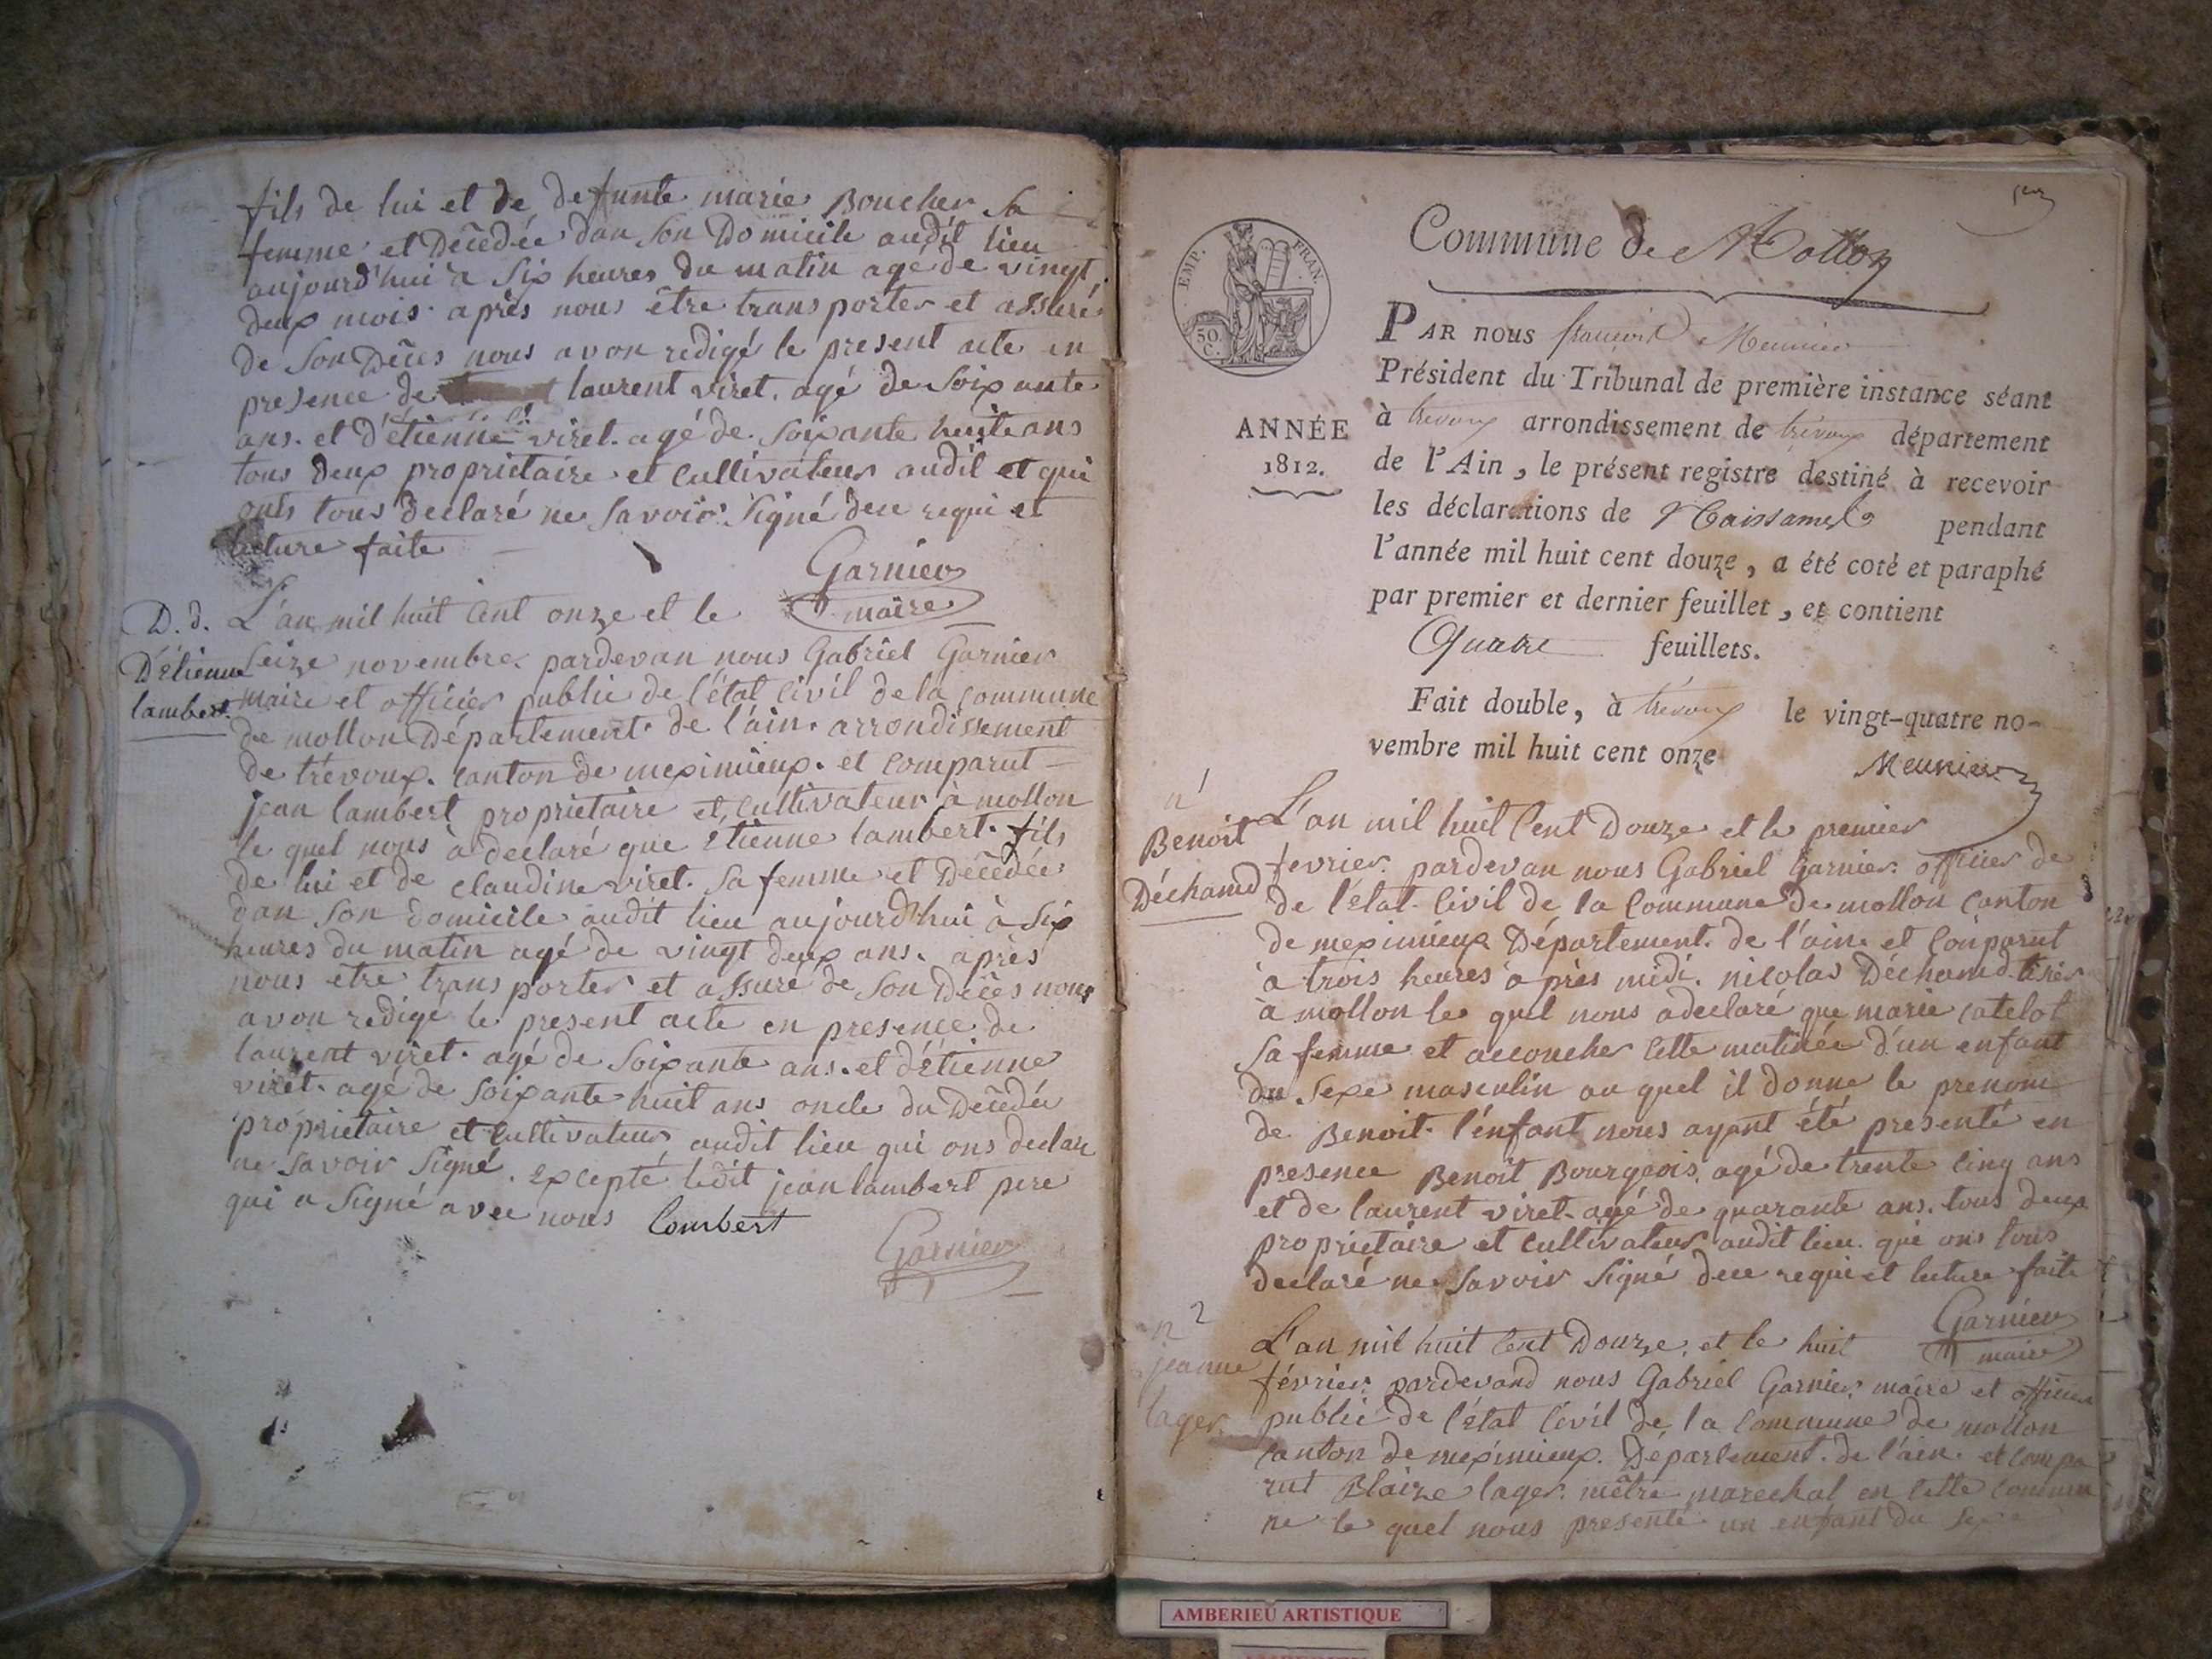 fils de lui et de defunte marie Boucher sa
femme et Décédée dan son Domicile audit lieu
aujourd'hui à six heures du matin agé de vingt
deux mois après nous être transporter et assuré
de son Décès nous avon redigé le present acte en
presence de laurent viret. agé de soixante
ans. et d'étienne viret. agé de soixante huit ans
tous deux propriétaire et cultivateur audit et qui
onts tous declaré ne savoir signé dece requi et
lecture faite
Garnier
maire
D. d.
D'étienne
lambert.
L'an mil huit cent onze et le
seize novembre. pardevan nous Gabriel Garnier
maire et officier public de l'état civil de la commune
de mollon Département de l'ain. arrondissement
de trévoux. canton de meximieux. et comparut
jean lambert propriétaire et cultivateur à mollon
le quel nous à declaré que étienne lambert. fils
de lui et de claudine viret. sa femme et Décédée
dan son domicile audit lieu aujourd'hui à six
heures du matin agé de vingt deux ans. après
nous etre transporter et assuré de son Décès nous
avon redigé le present acte en presence de
laurent viret. agé de soixante ans. et d'étienne
viret. agé de soixante huit ans oncle du Décédée
propriétaire et cultivateur audit lieu qui ons declare
ne savoir signé. excepté ledit jean lambert pere
qui a signé avec nous Lombert
Garnier
Commune de Mollon
EMP. FRAN.
50. C.
ANNÉE
1812.
PAR nous françois Meunier
Président du Tribunal de première instance séant
à trevoux arrondissement de trévoux département
de l'Ain, le présent registre destiné à recevoir
les déclarations de Naissances pendant
l'année mil huit cent douze, a été coté et paraphé
par premier et dernier feuillet, et contient
Quatre feuillets.
Fait double, à trévoux le vingt-quatre no-
vembre mil huit cent onze
Meunier
n 1
Benoît
Déchamd
L'an mil huit cent Douze et le premier
fevrier. pardevan nous Gabriel Garnier. officier de
de l'état civil de la commune de mollon canton
de meximieux Département. de l'ain. et comparut
à trois heures après midi. nicolas Déchamd
à mollon le quel nous a declaré que marie catelot
sa femme et accoucher cette matinée d'un enfant
du sexe masculin au quel il donne le prenom
de Benoit. l'énfant nous ayant été presenté en
presence Benoît Bourgeois, agé de trente cinq ans
et de laurent viret. agé de quarante ans. tous deux
propriétaire et cultivateur audit lieu. qui ons tous
declaré ne savoir signé dece requi et lecture faite
Garnier
maire
n 2
jeanne
lager.
L'an mil huit cent Douze. et le huit
février. pardevand nous Gabriel Garnier maire et officier
public de l'état civil de la commune de mollon
canton de meximieux. Département. de l'ain. et compa
rut Blaize lager. mêtre marechal en cette commu
ne le quel nous presenté un enfant du sexe
AMBERIEU ARTISTIQUE